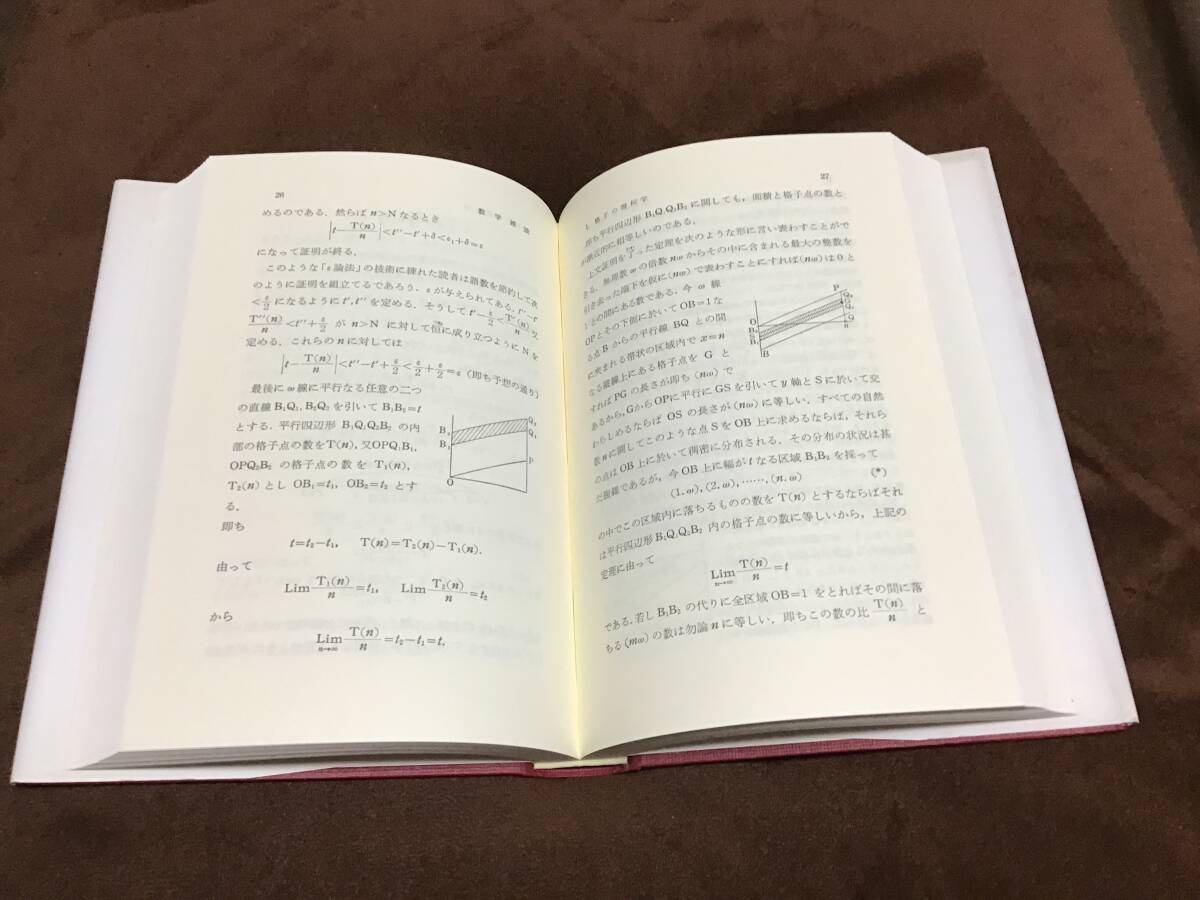 26
数学雑談
めるのである．然らば n>N なるとき
|t−T(n)/n|<t″−t′+δ<ε₁+δ=ε
になって証明が終る．
このような「ε論法」の技術に練れた読者は語数を節約して次
のように証明を組立てるであろう．εが与えられてある．t″−t′
<ε/2 になるように t′, t″ を定める．そうして t′−ε/2<T′(n)/n 又
T″(n)/n<t″+ε/2 が n>N に対して恒に成り立つように N を
定める．これらの n に対しては
|t−T(n)/n|<t″−t′+ε/2<ε/2+ε/2=ε (即ち予想の通り)
最後に ω線に平行なる任意の二つ
の直線 B₁Q₁, B₂Q₂ を引いて B₁B₂=t
とする．平行四辺形 B₁Q₁Q₂B₂ の内
部の格子点の数を T(n), 又 OPQ₁B₁,
OPQ₂B₂ の格子点の数を T₁(n),
T₂(n) とし OB₁=t₁, OB₂=t₂ とす
る．
B₂
B₁
O
Q₂
Q₁
P
即ち
t=t₂−t₁, T(n)=T₂(n)−T₁(n).
由って
Lim T₁(n)/n=t₁, Lim T₂(n)/n=t₂
から
Lim n→∞ T(n)/n=t₂−t₁=t.
27
1. 格子の幾何学
即ち平行四辺形 B₁Q₁Q₂B₂ に関しても，面積と格子点の数と
が漸近的に相等しいのである．
上文証明を了った定理を次のような形に言い表わすことがで
きる．無理数 ω の倍数 nω からその中に含まれる最大の整数を
引き去った端下を仮に (nω) で表わすことにすれば (nω) は 0 と
1 との間にある数である．今 ω 線
OP とその下側に於いて OB=1 な
る点 B からの平行線 BQ との間
に夾まれる帯状の区域内で x=n
なる縦線上にある格子点を G と
すれば PG の長さが即ち (nω) で
あるから，G から OP に平行に GS を引いて y 軸と S に於いて交
わらしめるならば OS の長さが (nω) に等しい．すべての自然
数 n に関してこのような点 S を OB 上に求めるならば，それら
の点は OB 上に於いて稠密に分布される．その分布の状況は甚
だ複雑であるが，今 OB 上に幅が t なる区域 B₁B₂ を採って
(1, ω), (2, ω), ……, (n, ω) (*)
の中でこの区域内に落ちるものの数を T(n) とするならばそれ
は平行四辺形 B₁Q₁Q₂B₂ 内の格子点の数に等しいから，上記の
定理に由って
Lim n→∞ T(n)/n=t
である．若し B₁B₂ の代りに全区域 OB=1 をとればその間に落
ちる (mω) の数は勿論 n に等しい．即ちこの数の比 T(n)/n と
P
O
S
B₁
B
Q
n